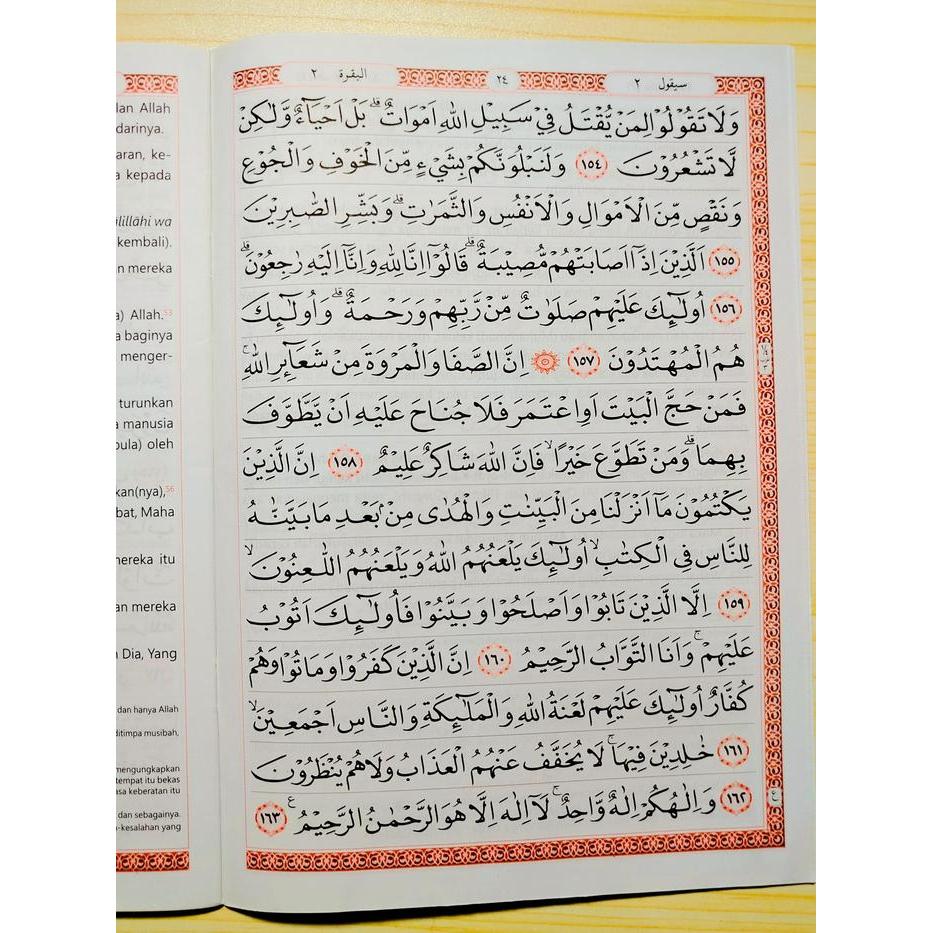 سيقول ٢
٢٤
البقرة ٢
وَلَا تَقُوْلُوْا لِمَنْ يُّقْتَلُ فِيْ سَبِيْلِ اللّٰهِ اَمْوَاتٌ ۗ بَلْ اَحْيَاۤءٌ وَّلٰكِنْ
لَّا تَشْعُرُوْنَ ١٥٤ وَلَنَبْلُوَنَّكُمْ بِشَيْءٍ مِّنَ الْخَوْفِ وَالْجُوْعِ
وَنَقْصٍ مِّنَ الْاَمْوَالِ وَالْاَنْفُسِ وَالثَّمَرٰتِ ۗ وَبَشِّرِ الصّٰبِرِيْنَ
١٥٥ اَلَّذِيْنَ اِذَآ اَصَابَتْهُمْ مُّصِيْبَةٌ ۗ قَالُوْٓا اِنَّا لِلّٰهِ وَاِنَّآ اِلَيْهِ رٰجِعُوْنَ ۗ
١٥٦ اُولٰۤىِٕكَ عَلَيْهِمْ صَلَوٰتٌ مِّنْ رَّبِّهِمْ وَرَحْمَةٌ ۗ وَاُولٰۤىِٕكَ
هُمُ الْمُهْتَدُوْنَ ١٥٧ ۞ اِنَّ الصَّفَا وَالْمَرْوَةَ مِنْ شَعَاۤىِٕرِ اللّٰهِ ۚ
فَمَنْ حَجَّ الْبَيْتَ اَوِ اعْتَمَرَ فَلَا جُنَاحَ عَلَيْهِ اَنْ يَّطَّوَّفَ
بِهِمَا ۗ وَمَنْ تَطَوَّعَ خَيْرًا ۙ فَاِنَّ اللّٰهَ شَاكِرٌ عَلِيْمٌ ١٥٨ اِنَّ الَّذِيْنَ
يَكْتُمُوْنَ مَآ اَنْزَلْنَا مِنَ الْبَيِّنٰتِ وَالْهُدٰى مِنْۢ بَعْدِ مَا بَيَّنّٰهُ
لِلنَّاسِ فِى الْكِتٰبِ ۙ اُولٰۤىِٕكَ يَلْعَنُهُمُ اللّٰهُ وَيَلْعَنُهُمُ اللّٰعِنُوْنَ ۙ
١٥٩ اِلَّا الَّذِيْنَ تَابُوْا وَاَصْلَحُوْا وَبَيَّنُوْا فَاُولٰۤىِٕكَ اَتُوْبُ
عَلَيْهِمْ ۚ وَاَنَا التَّوَّابُ الرَّحِيْمُ ١٦٠ اِنَّ الَّذِيْنَ كَفَرُوْا وَمَاتُوْا وَهُمْ
كُفَّارٌ اُولٰۤىِٕكَ عَلَيْهِمْ لَعْنَةُ اللّٰهِ وَالْمَلٰۤىِٕكَةِ وَالنَّاسِ اَجْمَعِيْنَ ۙ
١٦١ خٰلِدِيْنَ فِيْهَا ۚ لَا يُخَفَّفُ عَنْهُمُ الْعَذَابُ وَلَا هُمْ يُنْظَرُوْنَ
١٦٢ وَاِلٰهُكُمْ اِلٰهٌ وَّاحِدٌ ۚ لَآ اِلٰهَ اِلَّا هُوَ الرَّحْمٰنُ الرَّحِيْمُ ࣖ ١٦٣
ع
lan Allah
darinya.
aran, ke-
a kepada
lillāhi wa
kembali).
an mereka
a) Allah.53
a baginya
menger-
turunkan
a manusia
bula) oleh
kan(nya),56
bat, Maha
mereka itu
an mereka
h Dia, Yang
dan hanya Allah
ditimpa musibah,
mengungkapkan
tempat itu bekas
asa keberatan itu
dan sebagainya.
-kesalahan yang